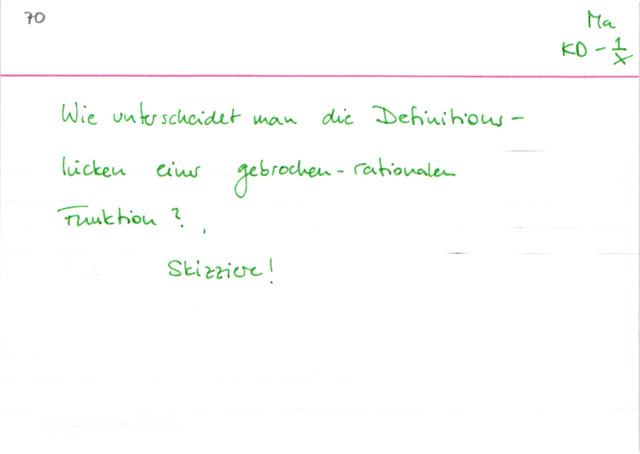 70
Ma
KD - 1/x
Wie unterscheidet man die Definitions-
lücken einer gebrochen-rationalen
Funktion?
Skizziere!